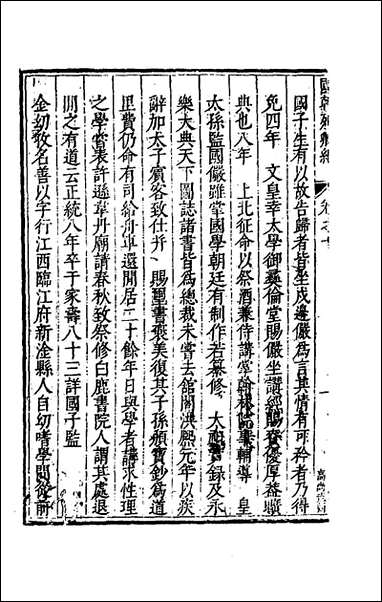 國子生有以故告歸者皆坐戍邊儼為言其情有可矜者乃得
免四年 文皇幸太學御彝倫堂賜儼坐講經賜賚優厚蓋曠
典也八年 上北征命以祭酒兼侍講掌翰林院事輔導 皇
太孫監國儼雖掌國學朝廷有制作若纂修 太祖實錄及永
樂大典天下圖誌諸書皆為總裁未嘗去館閣洪熙元年以疾
辭加太子賓客致仕并 賜璽書褒美復其子孫頒寶鈔為道
里費仍命有司給舟車還閒居二十餘年日與學者講求性理
之學嘗表許遜韋丹廟請春秋致祭修白鹿書院人謂其處退
閒之有道云正統八年卒于家壽八十三詳國子監
金幼孜名善以字行江西臨江府新淦縣人自幼嗜學聞館前